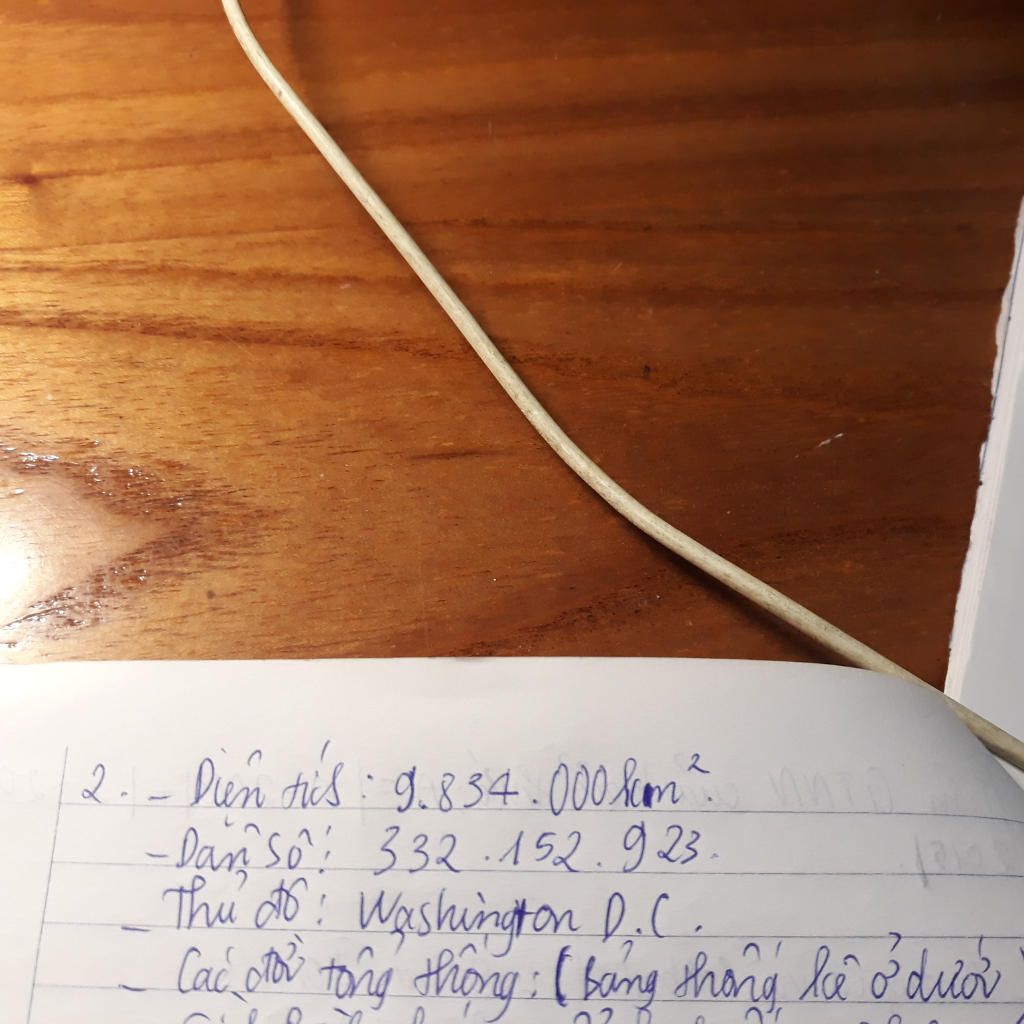 2. - Diện tích: 9.834.000km².
- Dân số: 332.152.923.
- Thủ đô: Washington D.C.
- Các đời tổng thống: (bảng thống kê ở dưới)